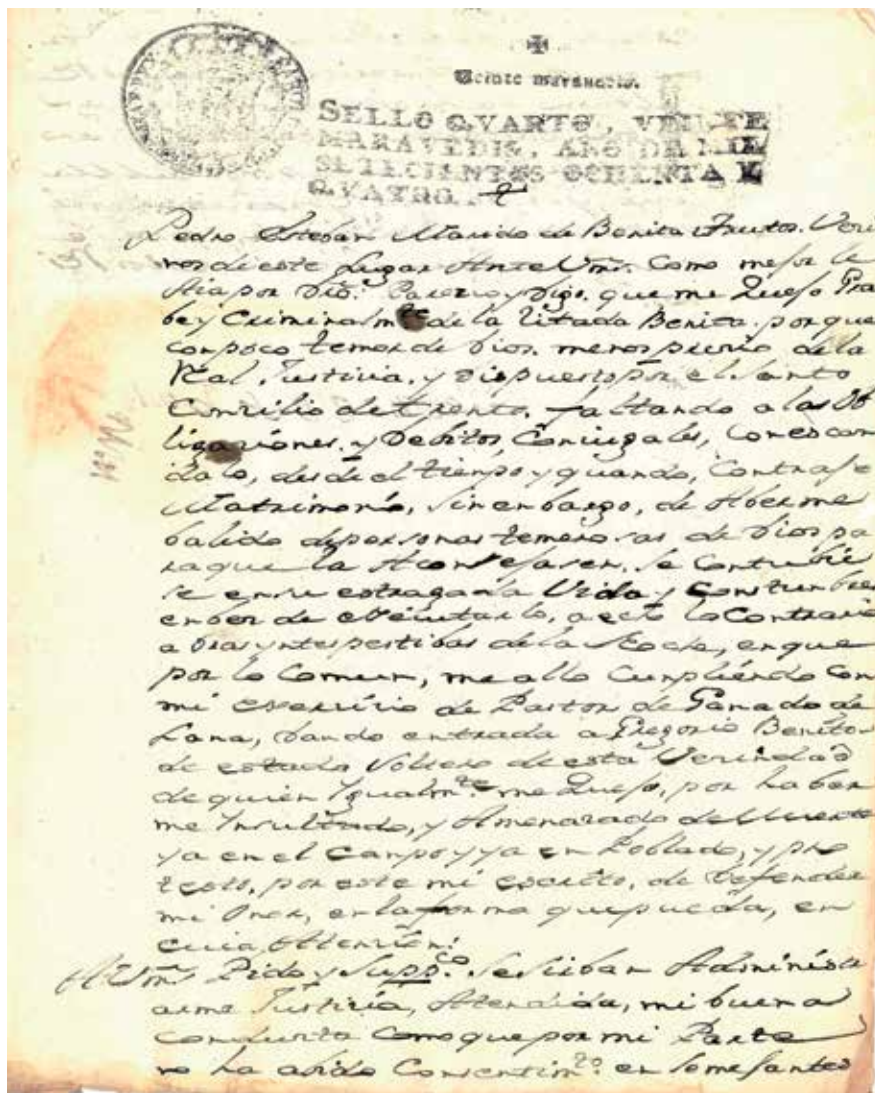 Veinte maravedis.
SELLO QVARTO, VEINTE
MARAVEDIS, AÑO DE MIL
SETECIENTOS OCHENTA Y
QVATRO.
Pedro Esteban Marido de Benita Frutos. Veci
nos de este Lugar Ante Vms. Como mejor le
por Dro. Parezco y Digo. que me Quejo Gra
be y Criminalmte de la Zitada Benita. porque
con poco temor de Dios. menos precio de la
Real Justicia. y Dispuesto por el Santo
Concilio de Trento. faltando a las Ob
ligaziones. y Debitos, Conjugales, con escan
dalo, desde el tienpo y quando, Contraje
Matrimonio, Sin enbargo, de Aberme
balido de personas temerosas de Dios pa
ra que la Aconsejasen. Se
se en su estragada Vida y Constunbres
en bez de, a echo lo Contrario
a Oras yntespestibas de la Noche, en que
por lo Comun, me allo Cunpliendo con
mi Exerzizio de Pastor de Ganado de
Lana, dando entrada a Gregorio Benito
de estado Soltero de esta Vecindad
de quien Igualmte. me Quejo, por haber
me Insultado, y Amenazado de Muerte
ya en el Canpo y ya en Poblado, y pro
testo, por este mi escrito, de Defender
mi Onor, en la forma que pueda, en
cuia Atenzion:
A Vms Pido y Suppco. Se siban Adminis
arme Justizia, Atendida, mi buena
Conducta Como que por mi Parte
no ha abido Consentimto. en Semejantes